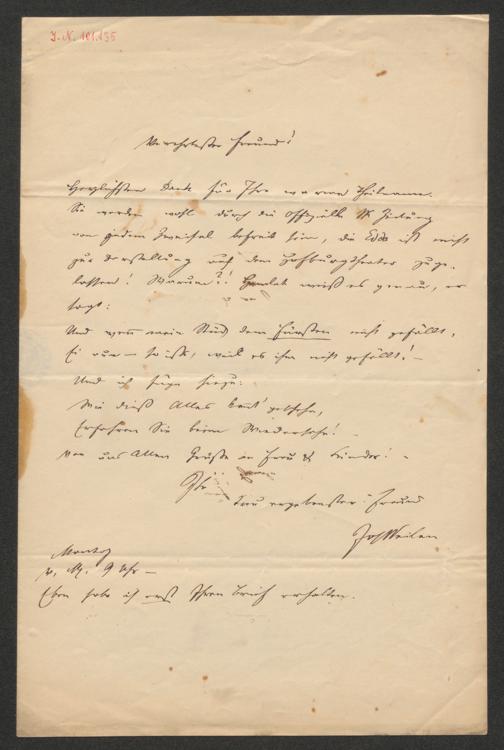 I. N. 101.135
Verehrtester Freund!
Herzlichsten Dank für Ihre warme Theilname.
Sie werden wohl durch die offizielle W Zeitung
von jedem Zweifel befreit sein, die Edda ist nicht
zur Darstellung auf dem Hofburgtheater zuge-
lassen! Warum?! Hamlet weiß es genau, er
sagt:
Und wenn mein Stück dem Fürsten nicht gefällt,
Ei nun – so ists, weil es ihm nicht gefällt! –
Und ich füge hinzu:
Wie dieß Alles kam, geschehn,
Erfahren Sie beim Wiedersehn! –
Von uns Allen Grüße an Frau & Kinder! –
Ihr
treu ergebenster Freund
Jos Weilen
Montag
v. M. 9 Uhr –
Eben habe ich erst Ihren Brief erhalten.